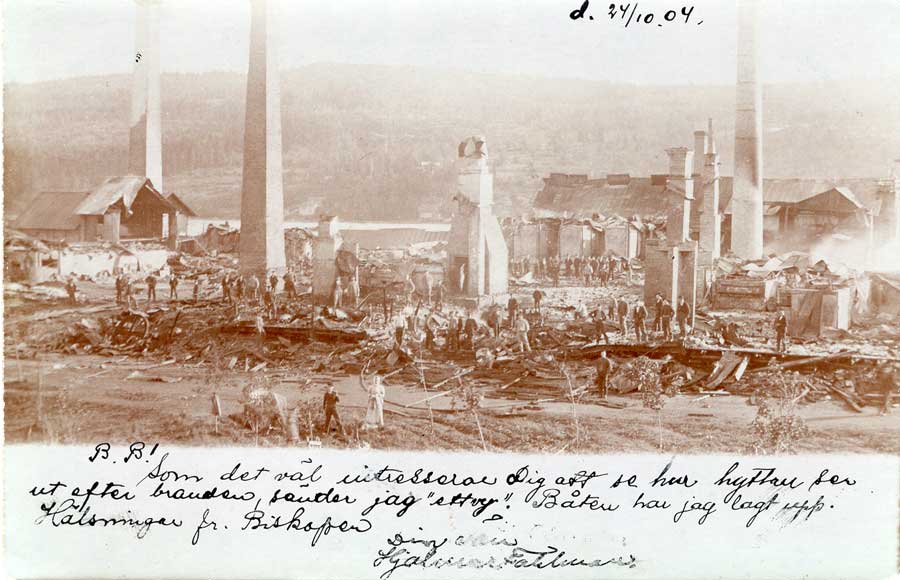 d. 24/10.04.
B. B!
Som det väl intresserar Dig att se hur hyttan ser
ut efter branden, sänder jag "ett vy". Båten har jag lagt upp.
Hälsningar fr. Biskopen
Din vän
Hjalmar Fahlman